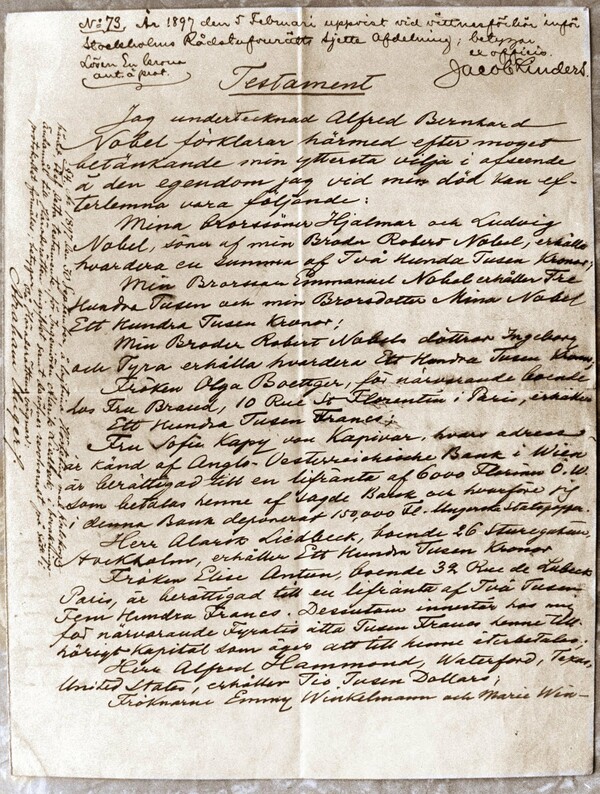 No 73. År 1897 den 5 Februari uppvist vid vittnesförhör inför
Stockholms Rådstufvurätts Sjette Afdelning; betygar
ex officio.
Jacob Linders.
Testament
Jag undertecknad Alfred Bernhard
Nobel förklarar härmed efter moget
betänkande min yttersta vilja i afseende
å den egendom jag vid min död kan ef-
terlemna vara följande:
Mina brorsöner Hjalmar och Ludvig
Nobel, söner af min Broder Robert Nobel, erhålla
hvardera en summa af Två Hundra Tusen Kronor;
Min Brorson Emmanuel Nobel erhåller Tre
Hundra Tusen och min Brorsdotter Mina Nobel
Ett Hundra Tusen Kronor;
Min Broder Robert Nobels döttrar Ingeborg
och Tyra erhålla hvardera Ett Hundra Tusen Kronor,
Fröken Olga Boettger, för närvarande boende
hos Fru Brand, 10 Rue St Florentin i Paris, erhåller
Ett Hundra Tusen Francs;
Fru Sofie Kapy von Kapivar, hvars adress
är känd af Anglo-Oesterreichische Bank i Wien
är berättigad till en lifränta af 6000 Florins Ö.W.
som betalas henne af sagde Bank och hvarföre jag
i denna Bank deponerat 150,000 Fl. i Ungerska Statspapper.
Herr Alarik Liedbeck, boende 26 Sturegatan,
Stockholm, erhåller Ett Hundra Tusen Kronor
Fröken Elise Antun, boende 32 Rue de Lubeck
Paris, är berättigad till en lifränta af Två Tusen
Fem Hundra Francs. Dessutom innestår hos mig
för närvarande Fyratio åtta Tusen Francs henne till-
hörigt Kapital som äger att till henne återbetalas;
Herr Alfred Hammond, Waterford, Texas,
United States, erhåller Tio Tusen Dollars;
Fröknarne Emmy Winkelmann och Marie Win-